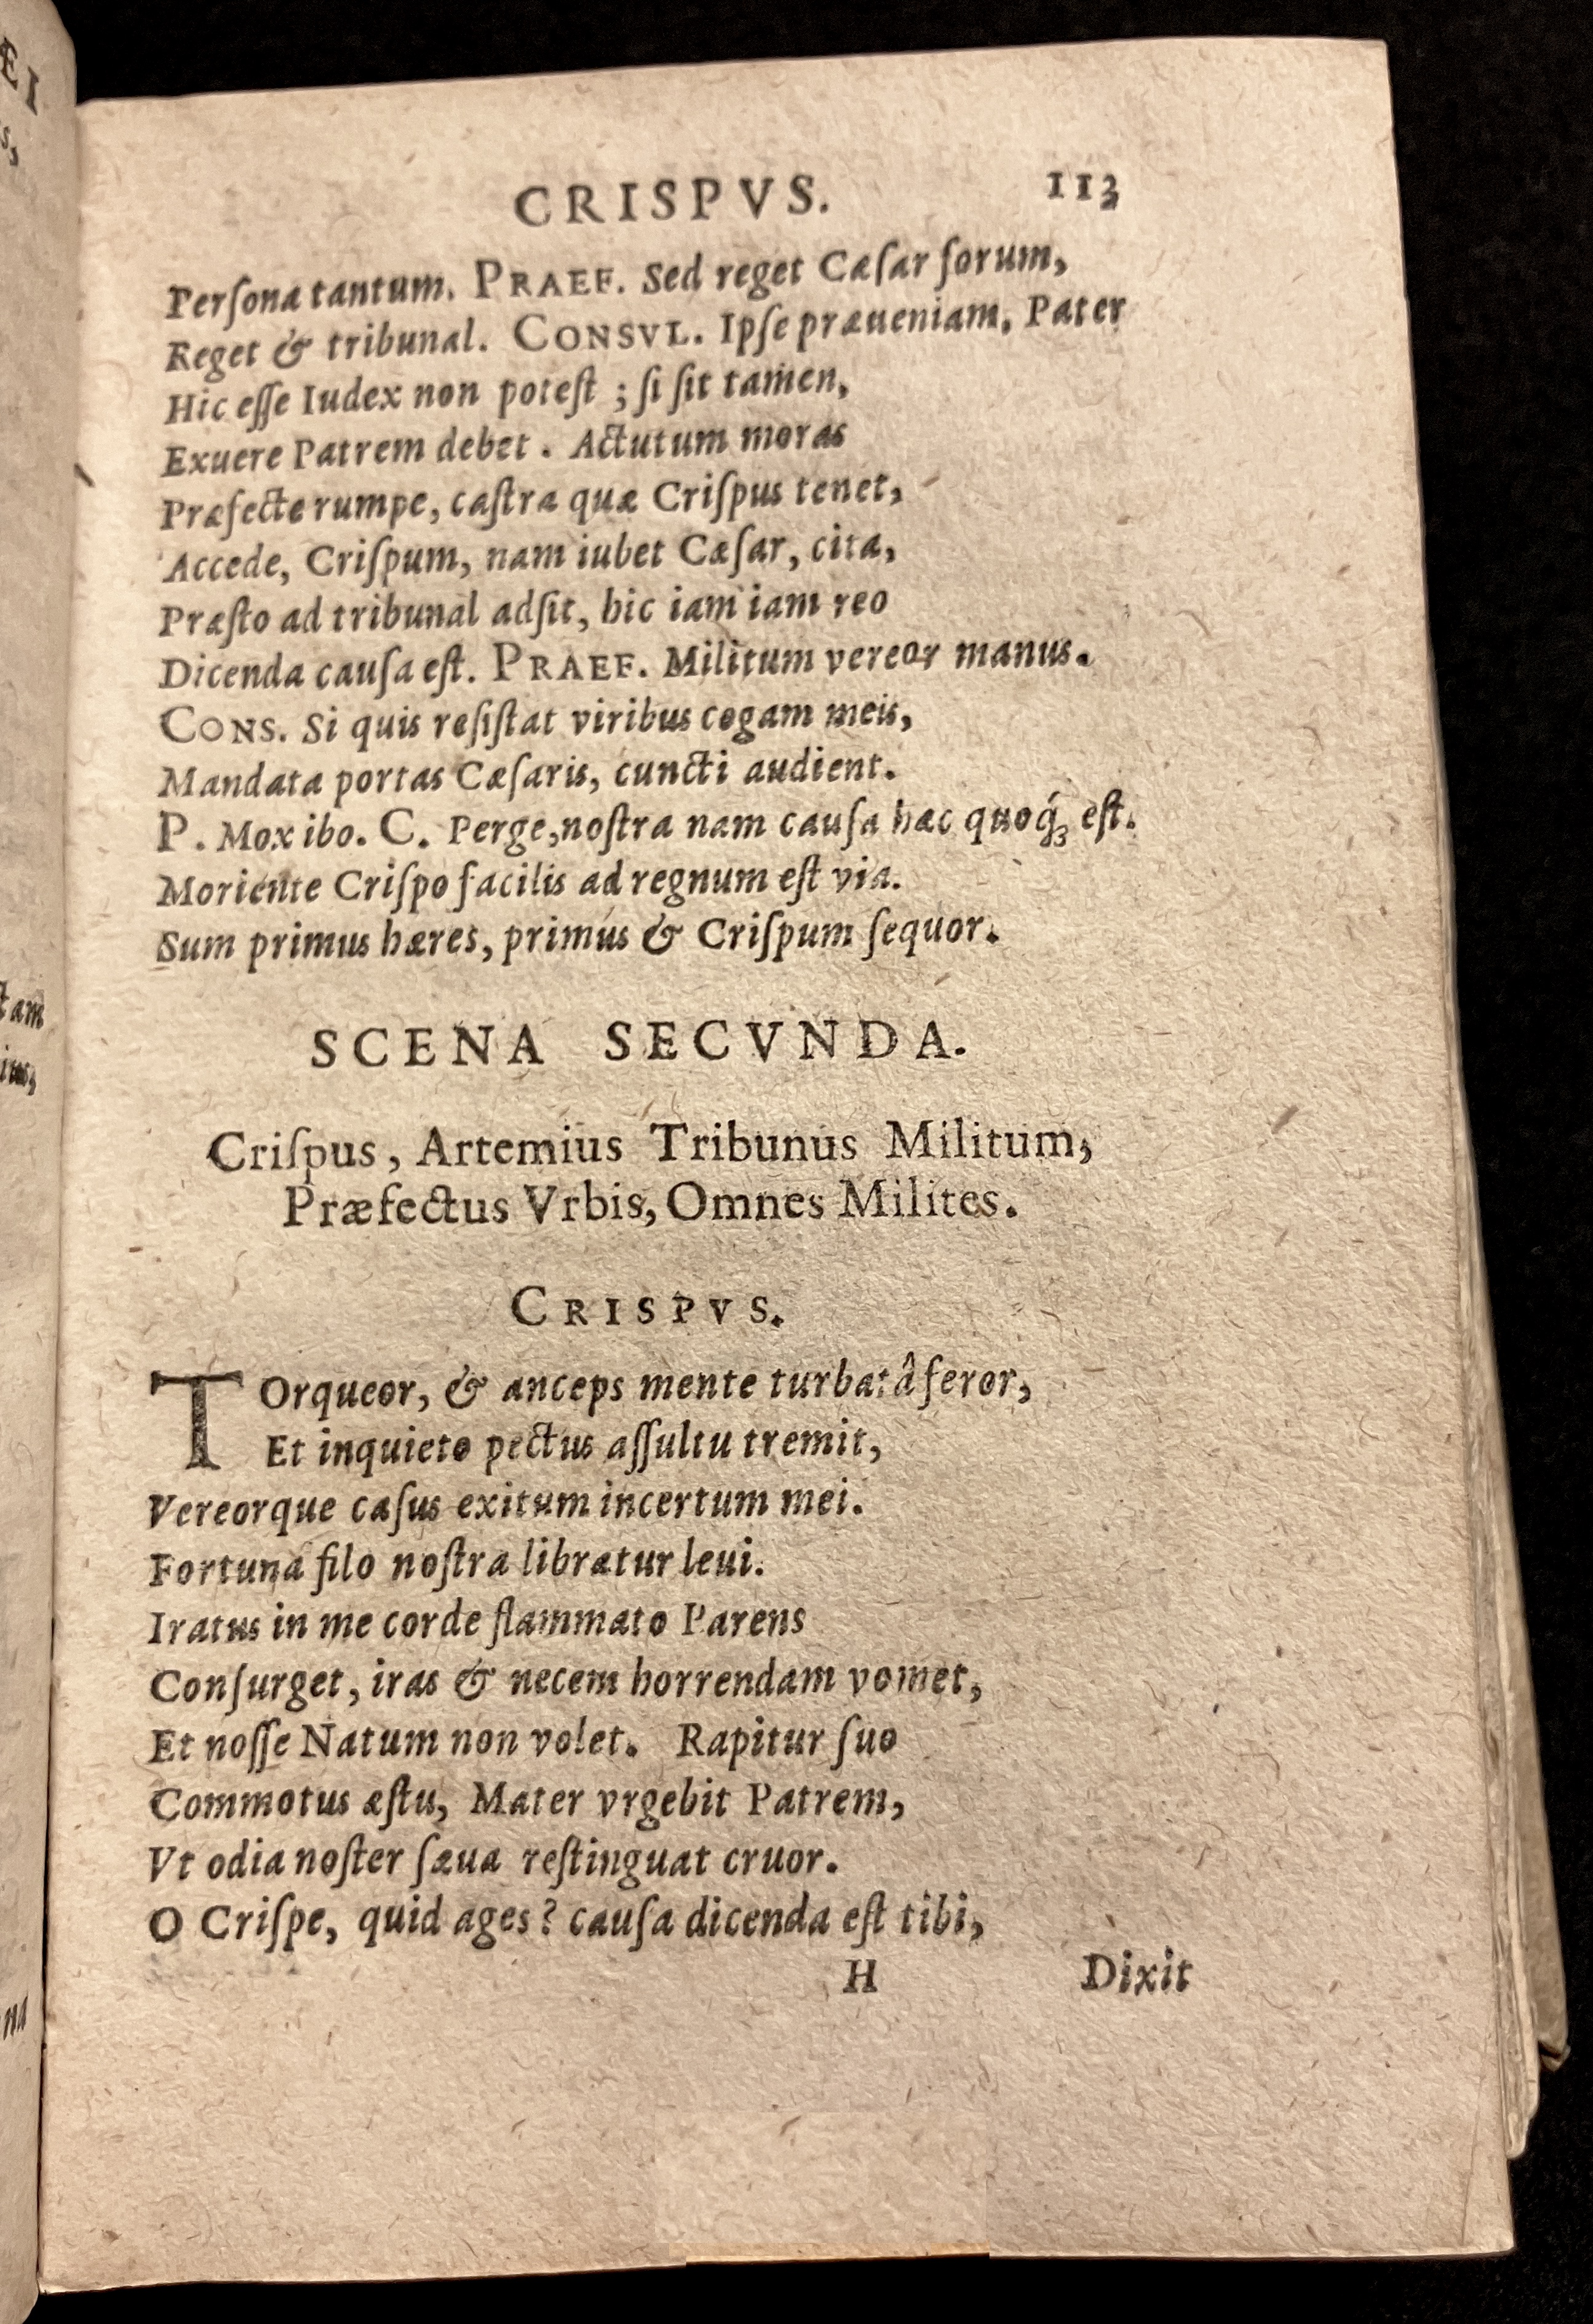 CRISPVS. 113
Perſona tantum. PRAEF. Sed reget Cæſar forum,
Reget & tribunal. CONSVL. Ipſe præueniam, Pater
Hic eſſe Iudex non poteſt ; ſi ſit tamen,
Exuere Patrem debet. Actutum moras
Præfecte rumpe, caſtra quæ Criſpus tenet,
Accede, Criſpum, nam iubet Cæſar, cita,
Præſto ad tribunal adſit, hic iam iam reo
Dicenda cauſa eſt. PRAEF. Militum vereor manus.
CONS. Si quis reſiſtat viribus cogam meis,
Mandata portas Cæſaris, cuncti audient.
P. Mox ibo. C. Perge, noſtra nam cauſa hæc quoq́ꝫ eſt.
Moriente Criſpo facilis ad regnum eſt via.
Sum primus hæres, primus & Criſpum ſequor.
SCENA SECVNDA.
Criſpus, Artemius Tribunus Militum,
Præfectus Vrbis, Omnes Milites.
CRISPVS.
TOrqueor, & anceps mente turbatâ feror,
Et inquieto pectus aſſultu tremit,
Vereorque caſus exitum incertum mei.
Fortuna filo noſtra libratur leui.
Iratus in me corde flammato Parens
Conſurget, iras & necem horrendam vomet,
Et noſſe Natum non volet. Rapitur ſuo
Commotus æſtu, Mater vrgebit Patrem,
Vt odia noſter ſæua reſtinguat cruor.
O Criſpe, quid ages? cauſa dicenda eſt tibi,
H Dixit